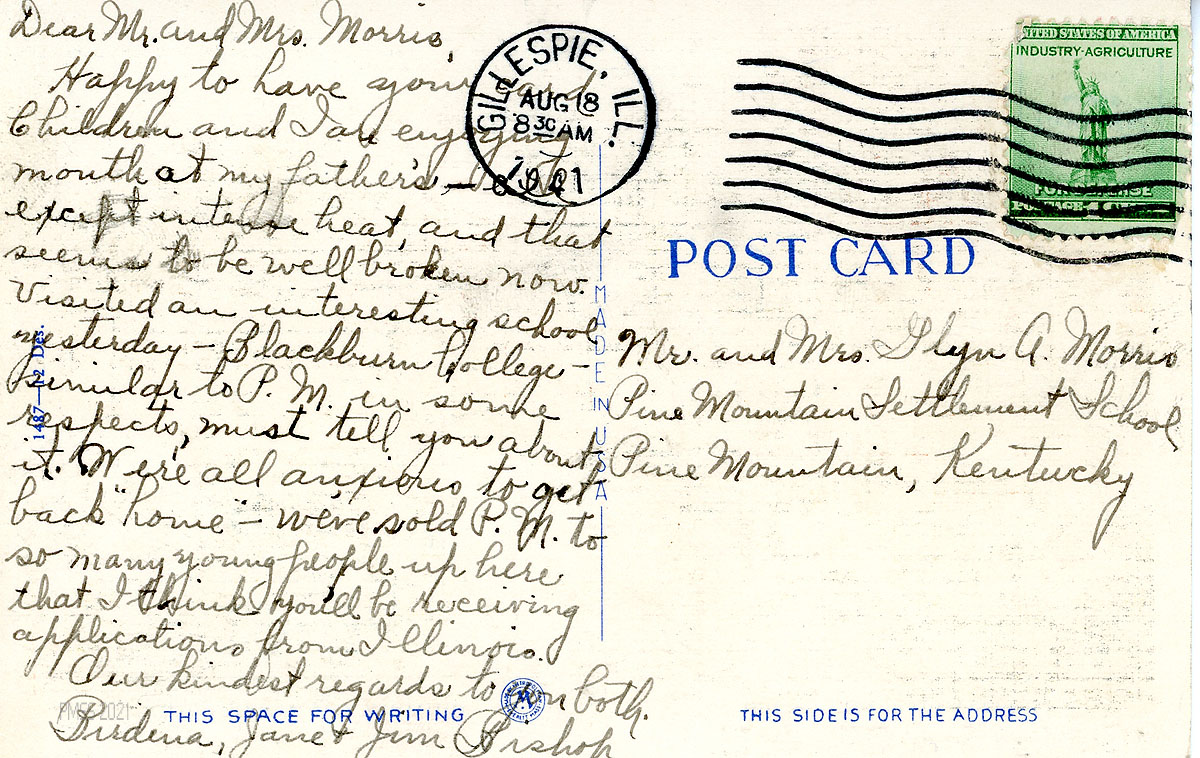 Dear Mr. and Mrs. Morris,
Happy to have your card.
Children and I are enjoying
month at my father's, —
except intense heat, and that
seems to be well broken now.
Visited an interesting school
yesterday — Blackburn College —
similar to P. M. in some
respects, must tell you about
it. We're all anxious to get
back "home" — we've sold P. M. to
so many young people up here
that I think you'll be receiving
applications from Illinois.
Our kindest regards to you both.
Birdena, Janet Jim Bishop
1487—12 Des.
PMSS 2021
THIS SPACE FOR WRITING
GILLESPIE, ILL.
AUG 18
8 30 AM
MADE IN USA
UNITED STATES OF AMERICA
INDUSTRY·AGRICULTURE
FOR DEFENSE
POST CARD
Mr. and Mrs. Glyn A. Morris
Pine Mountain Settlement School
Pine Mountain, Kentucky
THIS SIDE IS FOR THE ADDRESS